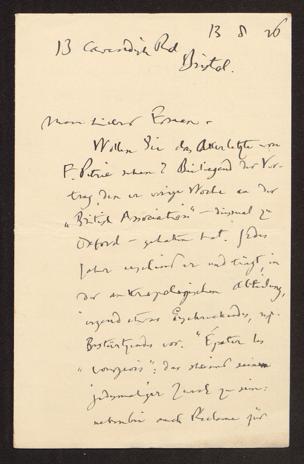 13 8 26
13 Cavendish Rd
Bristol.
Mein lieber Erman –
Wollen Sie das Allerletzte von
F. Petrie sehen? Beiliegend der Vor-
trag den er vorige Woche an der
„British Association" – diesmal zu
Oxford – gehalten hat. Jedes
Jahr erscheint er und trägt, in
der anthropologischen Abteilung,
irgend etwas Erschreckendes, resp.
vor. "Épater les
"bourgeois": das scheint sein
jedesmaliger Zweck zu sein:
nebenbei auch Reclame für